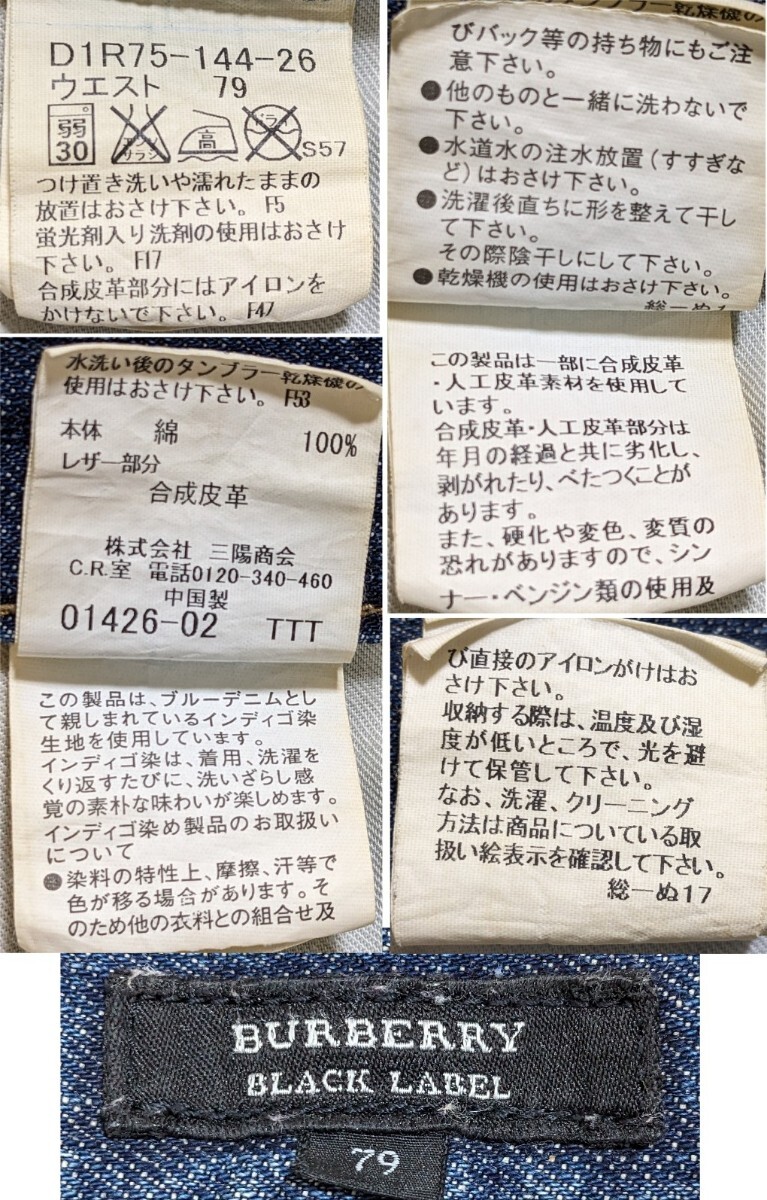 D1R75-144-26
ウエスト 79
弱
30
サラシ
高
ドライ
S57
つけ置き洗いや濡れたままの
放置はおさけ下さい。 F5
蛍光剤入り洗剤の使用はおさけ
下さい。 F17
合成皮革部分にはアイロンを
かけないで下さい。 F47
水洗い後のタンブラー乾燥機の
使用はおさけ下さい。 F53
本体 綿 100%
レザー部分
合成皮革
株式会社 三陽商会
C.R.室 電話0120-340-460
中国製
01426-02 TTT
この製品は、ブルーデニムとし
て親しまれているインディゴ染
生地を使用しています。
インディゴ染は、着用、洗濯を
くり返すたびに、洗いざらし感
覚の素朴な味わいが楽しめます。
インディゴ染め製品のお取扱い
について
●染料の特性上、摩擦、汗等で
色が移る場合があります。そ
のため他の衣料との組合せ及
びバック等の持ち物にもご注
意下さい。
●他のものと一緒に洗わないで
下さい。
●水道水の注水放置(すすぎな
ど)はおさけ下さい。
●洗濯後直ちに形を整えて干し
て下さい。
その際陰干しにして下さい。
●乾燥機の使用はおさけ下さい。
この製品は一部に合成皮革
・人工皮革素材を使用して
います。
合成皮革・人工皮革部分は
年月の経過と共に劣化し、
剥がれたり、べたつくことが
あります。
また、硬化や変色、変質の
恐れがありますので、シン
ナー・ベンジン類の使用及
び直接のアイロンがけはお
さけ下さい。
収納する際は、温度及び湿
度が低いところで、光を避
けて保管して下さい。
なお、洗濯、クリーニング
方法は商品についている取
扱い絵表示を確認して下さい。
総一ぬ17
BURBERRY
BLACK LABEL
79